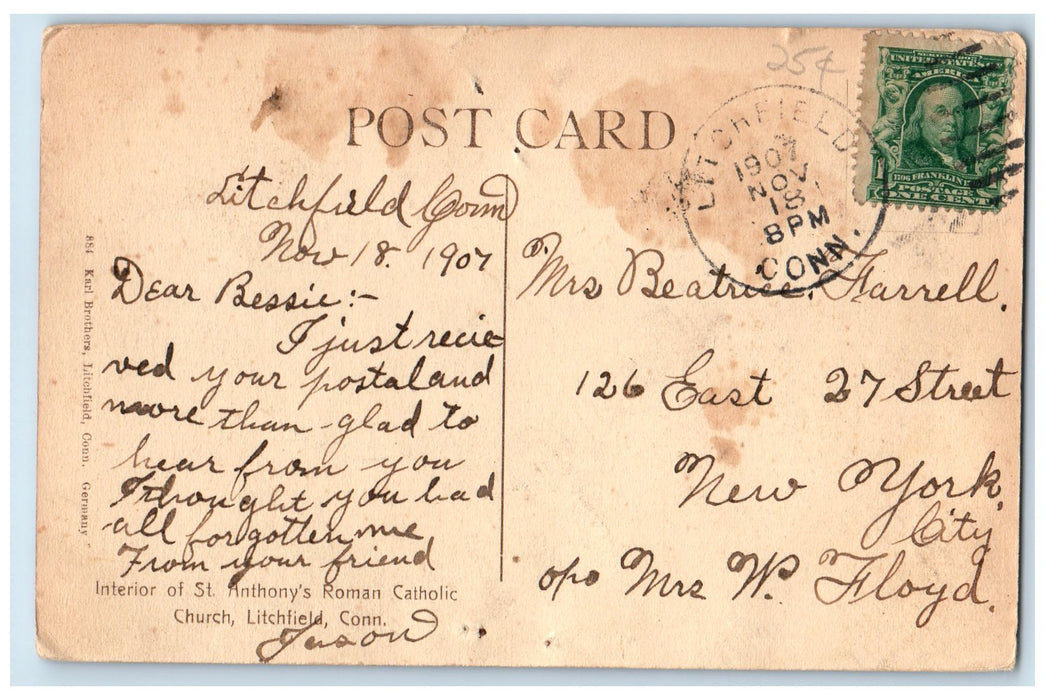 25¢
POST CARD
SERIES 1902
UNITED STATES OF
AMERICA
1706 FRANKLIN
POSTAGE
ONE CENT
LITCHFIELD
1907
NOV
18
8 PM
CONN.
Litchfield Conn
Nov 18. 1907
Dear Bessie:-
I just recie-
ved your postal and
more than glad to
hear from you
I thought you had
all forgotten me
From your friend
Interior of St. Anthony's Roman Catholic
Church, Litchfield, Conn.
884 Karl Brothers, Litchfield, Conn. Germany
Mrs Beatrice. Farrell.
126 East 27 Street
New York.
City
Mrs W. Floyd.